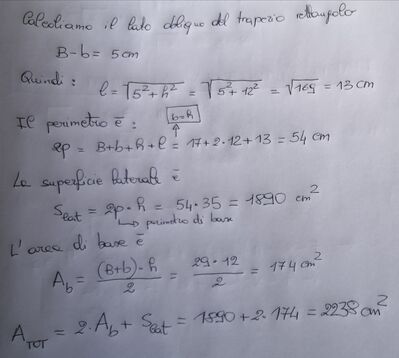 Calcoliamo il lato obliquo del trapezio rettangolo
B-b = 5 cm
Quindi: l = √5²+h² = √5²+12² = √169 = 13 cm
Il perimetro è: b=h
2p = B+b+h+l = 17+2·12+13 = 54 cm
La superficie laterale è
Slat = 2p·h = 54·35 = 1890 cm²
↳ perimetro di base
L'area di base è
Ab = (B+b)·h/2 = 29·12/2 = 174 cm²
ATOT = 2·Ab + Slat = 1890+2·174 = 2238 cm²